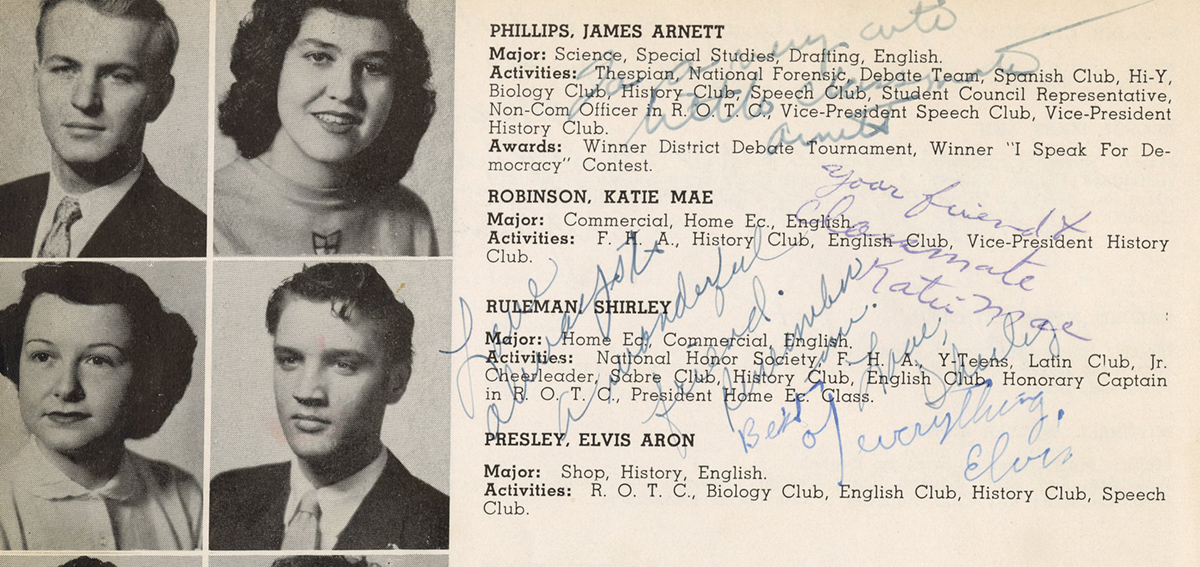 PHILLIPS, JAMES ARNETT
Major: Science, Special Studies, Drafting, English.
Activities: Thespian, National Forensic, Debate Team, Spanish Club, Hi-Y,
Biology Club, History Club, Speech Club, Student Council Representative,
Non-Com Officer in R. O. T. C., Vice-President Speech Club, Vice-President
History Club.
Awards: Winner District Debate Tournament, Winner "I Speak For De-
mocracy" Contest.
To a very cute
little classmate
Arnett
ROBINSON, KATIE MAE
Major: Commercial, Home Ec., English.
Activities: F. H. A., History Club, English Club, Vice-President History
Club.
Your friend &
Classmate
Katie Mae
RULEMAN, SHIRLEY
Major: Home Ec., Commercial, English.
Activities: National Honor Society, F. H. A., Y-Teens, Latin Club, Jr.
Cheerleader, Sabre Club, History Club, English Club, Honorary Captain
in R. O. T. C., President Home Ec. Class.
always to
a wonderful
friend.
Remember
me.
Love,
Shirley
PRESLEY, ELVIS ARON
Major: Shop, History, English.
Activities: R. O. T. C., Biology Club, English Club, History Club, Speech
Club.
Best
of everything.
Elvis